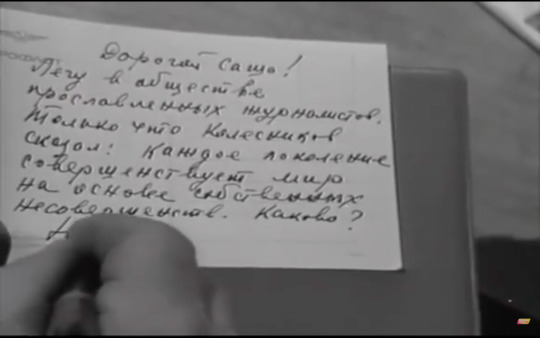 Дорогой Саша!
Лечу в обществе
прославленных журналистов.
Только что Колесников
сказал: Каждое поколение
совершенствует мир
на основе собственных
несовершенств. Каково?